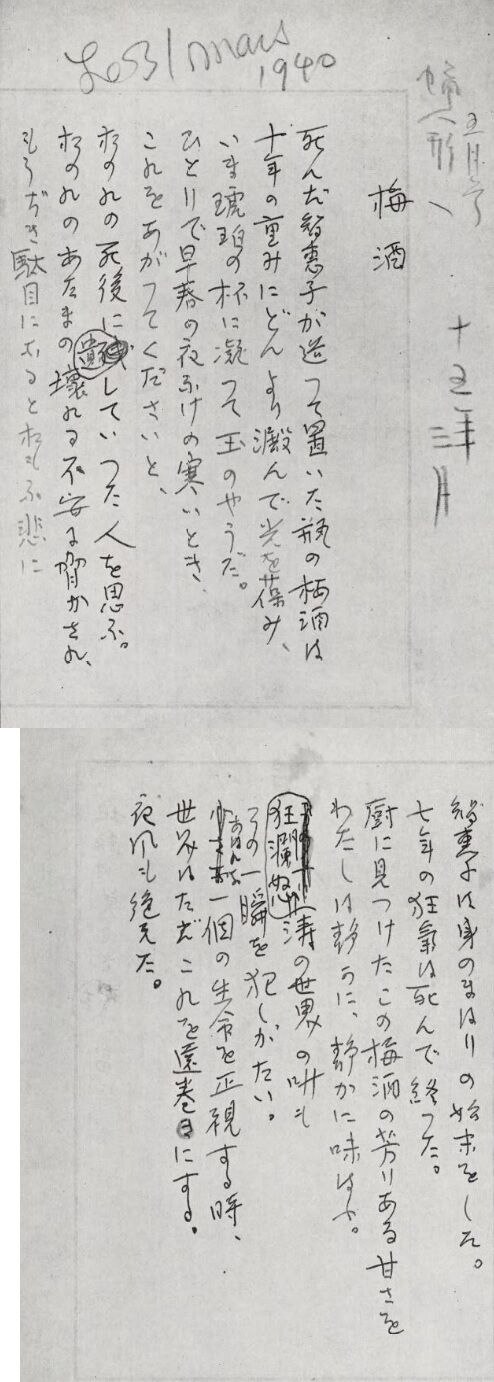 1940
五月号
蝋人形へ
十五年三月
梅酒
死んだ智恵子が造つて置いた瓶の梅酒は
十年の重みにどんより澱んで光を葆み、
いま琥珀の杯に凝つて玉のやうだ。
ひとりで早春の夜ふけの寒いとき、
これをあがつてくださいと、
おのれの死後に遺していつた人を思ふ。
おのれのあたまの壊れる不安に脅かされ、
もうぢき駄目になると思ふ悲に
智恵子は身のまはりの始末をした。
七年の狂氣は死んで終つた。
厨に見つけたこの梅酒の芳りある甘さを
わたしは静かに、静かに味はふ。
狂瀾怒濤の世界の叫も
この一瞬を犯しがたい。
あはれな一個の生命を正視する時、
世界はただこれを遠巻にする。
夜風も絶えた。